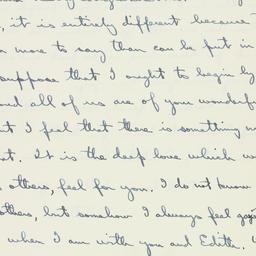 , it is entirely different because
more to say than can be put in
suppose that I ought to begin by
all of us are of you wonderful
I feel that there is something
. It is the deep love which
others, feel for you. I do not know
others, but somehow I always feel
when I am with you and Edith.